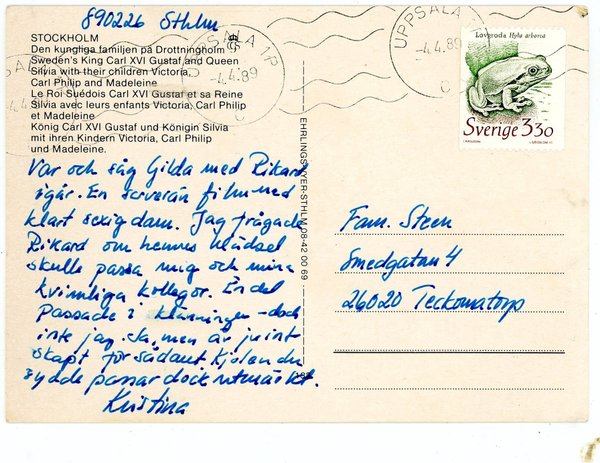 890226 Sthlm
STOCKHOLM
Den kungliga familjen på Drottningholm
Sweden's King Carl XVI Gustaf and Queen
Silvia with their children Victoria,
Carl Philip and Madeleine
Le Roi Suédois Carl XVI Gustaf et sa Reine
Silvia avec leurs enfants Victoria, Carl Philip
et Madeleine
König Carl XVI Gustaf und Königin Silvia
mit ihren Kindern Victoria, Carl Philip
und Madeleine.
Var och såg Gilda med Rikard
igår. En suverän film med
klart sexig dam. Jag frågade
Rikard om hennes klädsel
skulle passa mig och mina
kvinnliga kollegor. En del
passade i klänningen - dock
inte jag. Ja, men är ju int
skapt för sådant. Kjolen du
sydde passar dock utmärkt.
Kristina
EHRLINGS VYER-STHLM 08-42 00 69
UPPSALA 1P
-4.4.89
UPPSALA
-4.4.89
Lövgroda Hyla arborea
Sverige 330
Fam. Steen
Smedgatan 4
26020 Teckomatorp